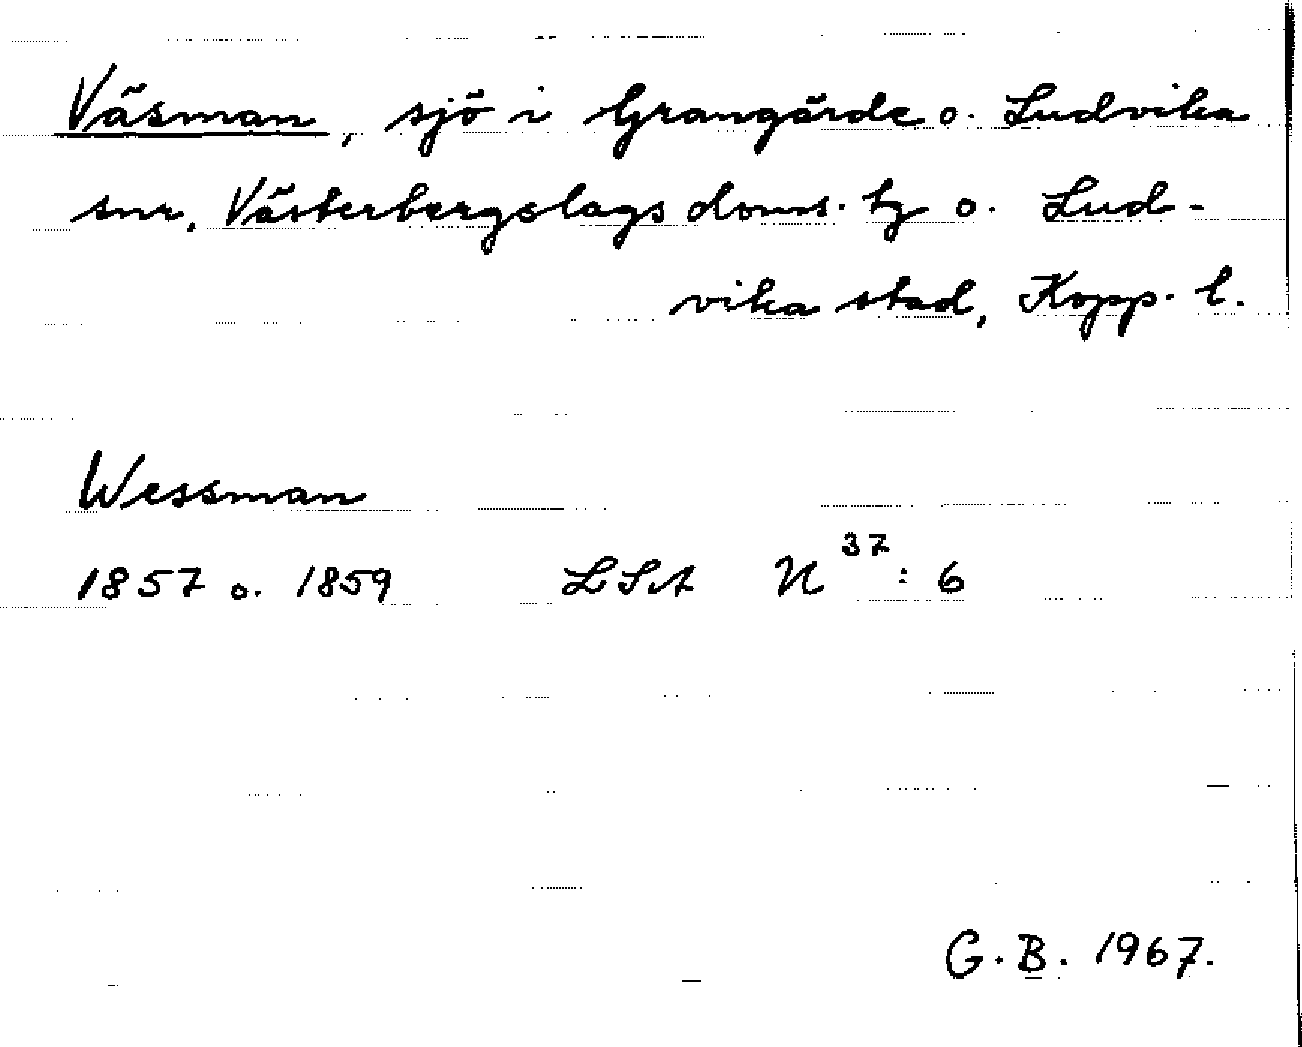 Väsman, sjö i Grangärde o. Ludvika
snr, Västerbergslags doms. tg o. Lud-
vika stad, Kopp. l.
Wessman
1857 o. 1859 LSA N 37 : 6
G.B. 1967.